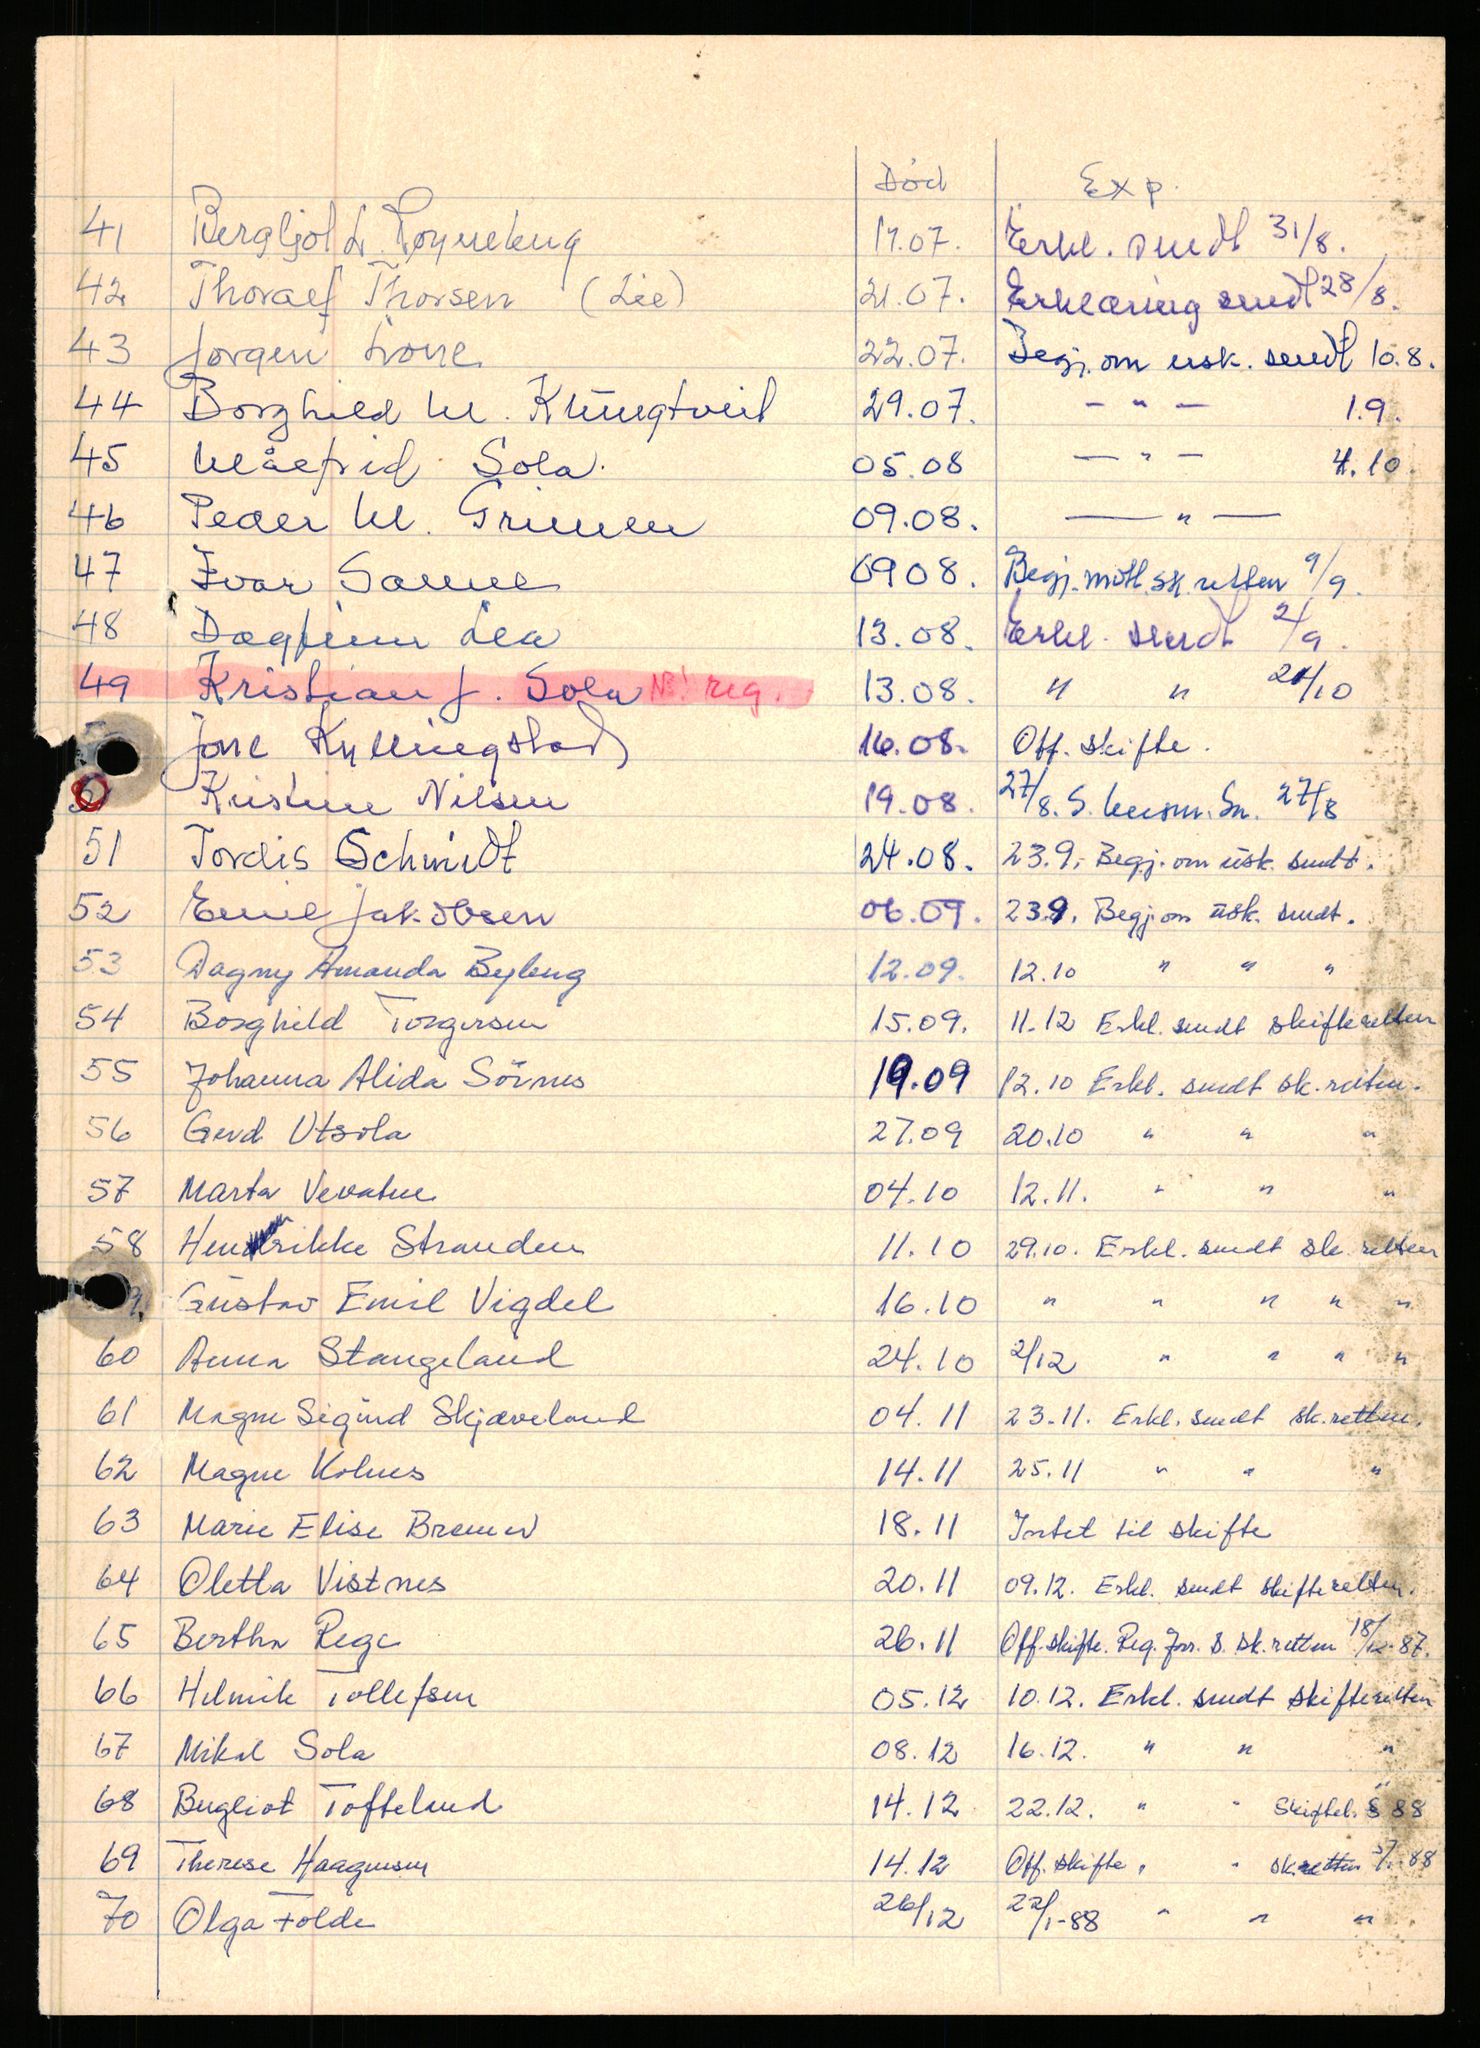 Død Exp.
41 Bergljot L. 17.07. Erkl. sendt 31/8.
42 Thoralf Thorsen (Lie) 21.07. Erklæring sendt 28/8.
43 Jørgen Lone 22.07. Begj. om usk. sendt 10.8.
44 Borghild M. 29.07. — " — 1.9.
45 Målfrid Sola. 05.08 — " — 4.10.
46 Peder M. Grimen 09.08. — " —
47 Ivar Sømme 0908. Begj. mott. sk. retten 9/9.
48 Dagfinn Lea 13.08. Erkl. sendt 2/9.
49 Kristian J. Sola N! reg. 13.08. " " 20/10
Jone Kyllingstad 16.08. Off. skifte.
Kristine Nilsen 19.08. 27/8. S. 27/8
51 Tordis Schmidt 24.08. 23.9. Begj. om usk. sendt.
52 Emil Jakobsen 06.09. 239. Begj. om usk. sendt.
53 Dagny Amanda Byberg 12.09. 12.10 " " "
54 Borghild Torgersen 15.09. 11.12 Erkl. sendt skifteretten
55 Johanna Alida Sörnes 19.09 12.10 Erkl. sendt sk. retten.
56 Gerd Utsola 27.09 20.10 " " "
57 Marta Vevatne 04.10 12.11. " " "
58 Henrikke Stranden 11.10 29.10. Erkl. sendt sk. retten
9. Gustav Emil Vigdel 16.10 " " " " "
60 Anna Stangeland 24.10 2/12 " " " "
61 Magne Sigurd Skjæveland 04.11 23.11. Erkl. sendt sk. retten.
62 Magne Kolnes 14.11 25.11 " " "
63 Marie Elise Bremer 18.11 Intet til skifte
64 Oletta Vistnes 20.11 09.12. Erkl. sendt skifteretten.
65 Bertha Rege 26.11 Off. skifte. Reg. forr. s. sk. retten 18/12-87.
66 Helmik Tollefsen 05.12 10.12. Erkl. sendt skifteretten
67 Mikal Sola 08.12 16.12. " " "
68 Bergliot Tofteland 14.12 22.12. " " " Skiftel. § 88
69 Therese Haagensen 14.12 Off. skifte " " sk.retten 88
70 Olga Folde 26/12 22/1-88 " " "